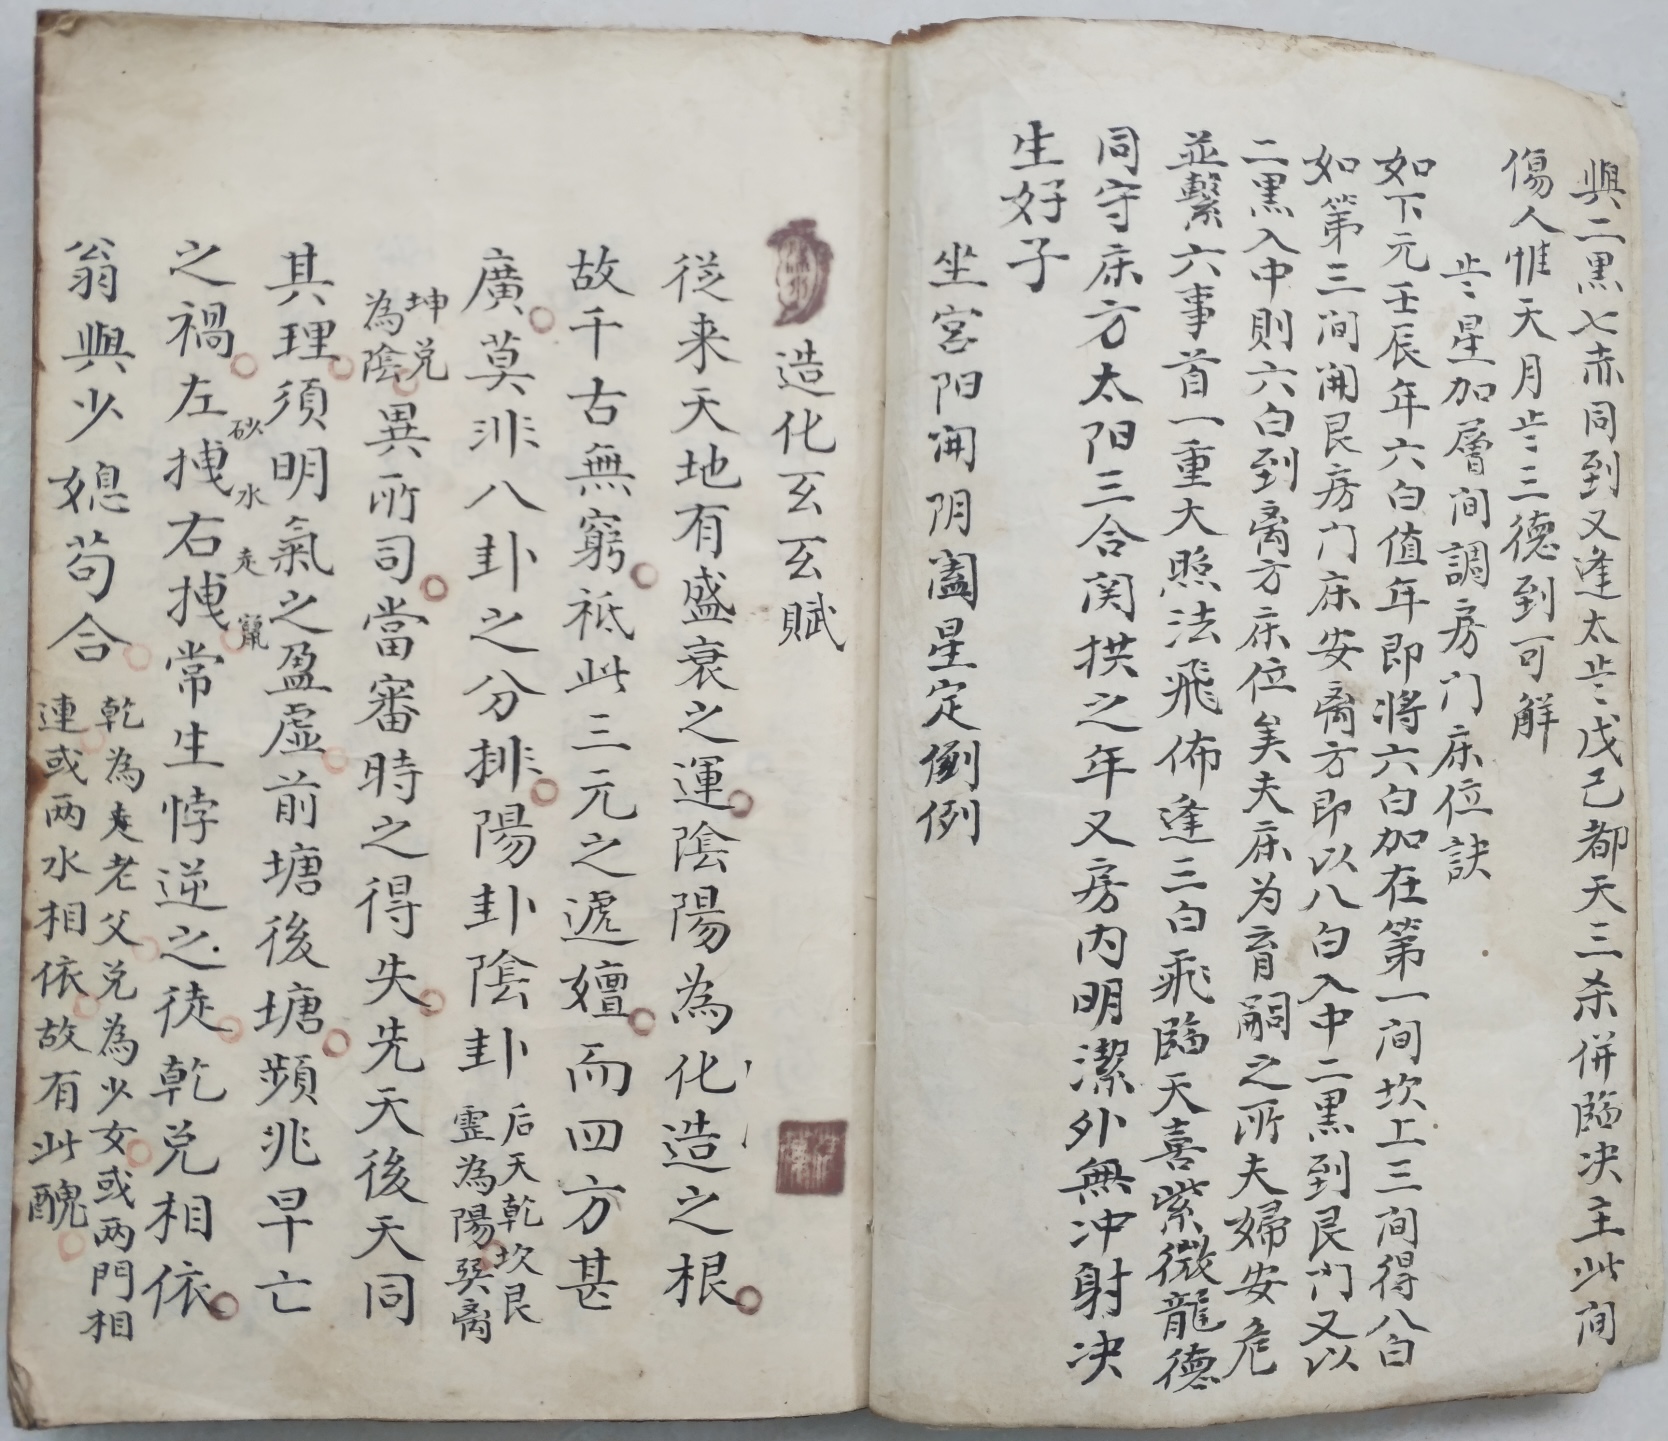 與二黑七赤同到又逢太歲戊己都天三杀併臨决主此间
傷人惟天月歲三德到可解
歲星加層间調房门床位訣
如下元壬辰年六白值年即將六白加在第一间坎上三间得八白
如第三间開艮房门床安离方即以八白入中二黑到艮门又以
二黑入中則六白到离方床位矣夫床为育嗣之所夫婦安危
並繫六事首一重大照法飛佈逢三白飛臨天喜紫微龍德
同守床方太阳三合関拱之年又房内明潔外無冲射决
生好子
坐宫阳開阴闔星定倒例
造化玄玄賦
從来天地有盛衰之運陰陽為化造之根
故千古無窮祇此三元之遞嬗而四方甚
廣莫非八卦之分排陽卦陰卦后天乾坎艮
震為陽巽离
坤兑
為陰異所司當審時之得失先天後天同
其理須明氣之盈虚前塘後塘頻兆早亡
砂水
之禍左拽右拽常生悖逆之徒乾兑相依
翁與少媳苟合乾為老父兑為少女或两門相
連或两水相依故有此醜